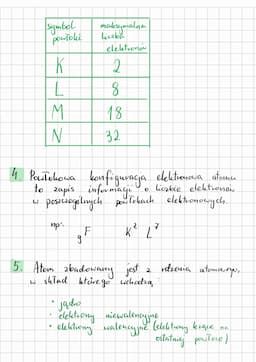 symbol powłoki
maksymalna liczba elektronów
K 2
L 8
M 18
N 32
4. Powłokowa konfiguracja elektronowa atomu
to zapis informacji o liczbie elektronów
w poszczególnych powłokach elektronowych.
np: ₉F K² L⁷
5. Atom zbudowany jest z rdzenia atomowego,
w skład którego wchodzą:
• jądro
• elektrony niewalencyjne
• elektrony walencyjne (elektrony krążące na
ostatniej powłoce)